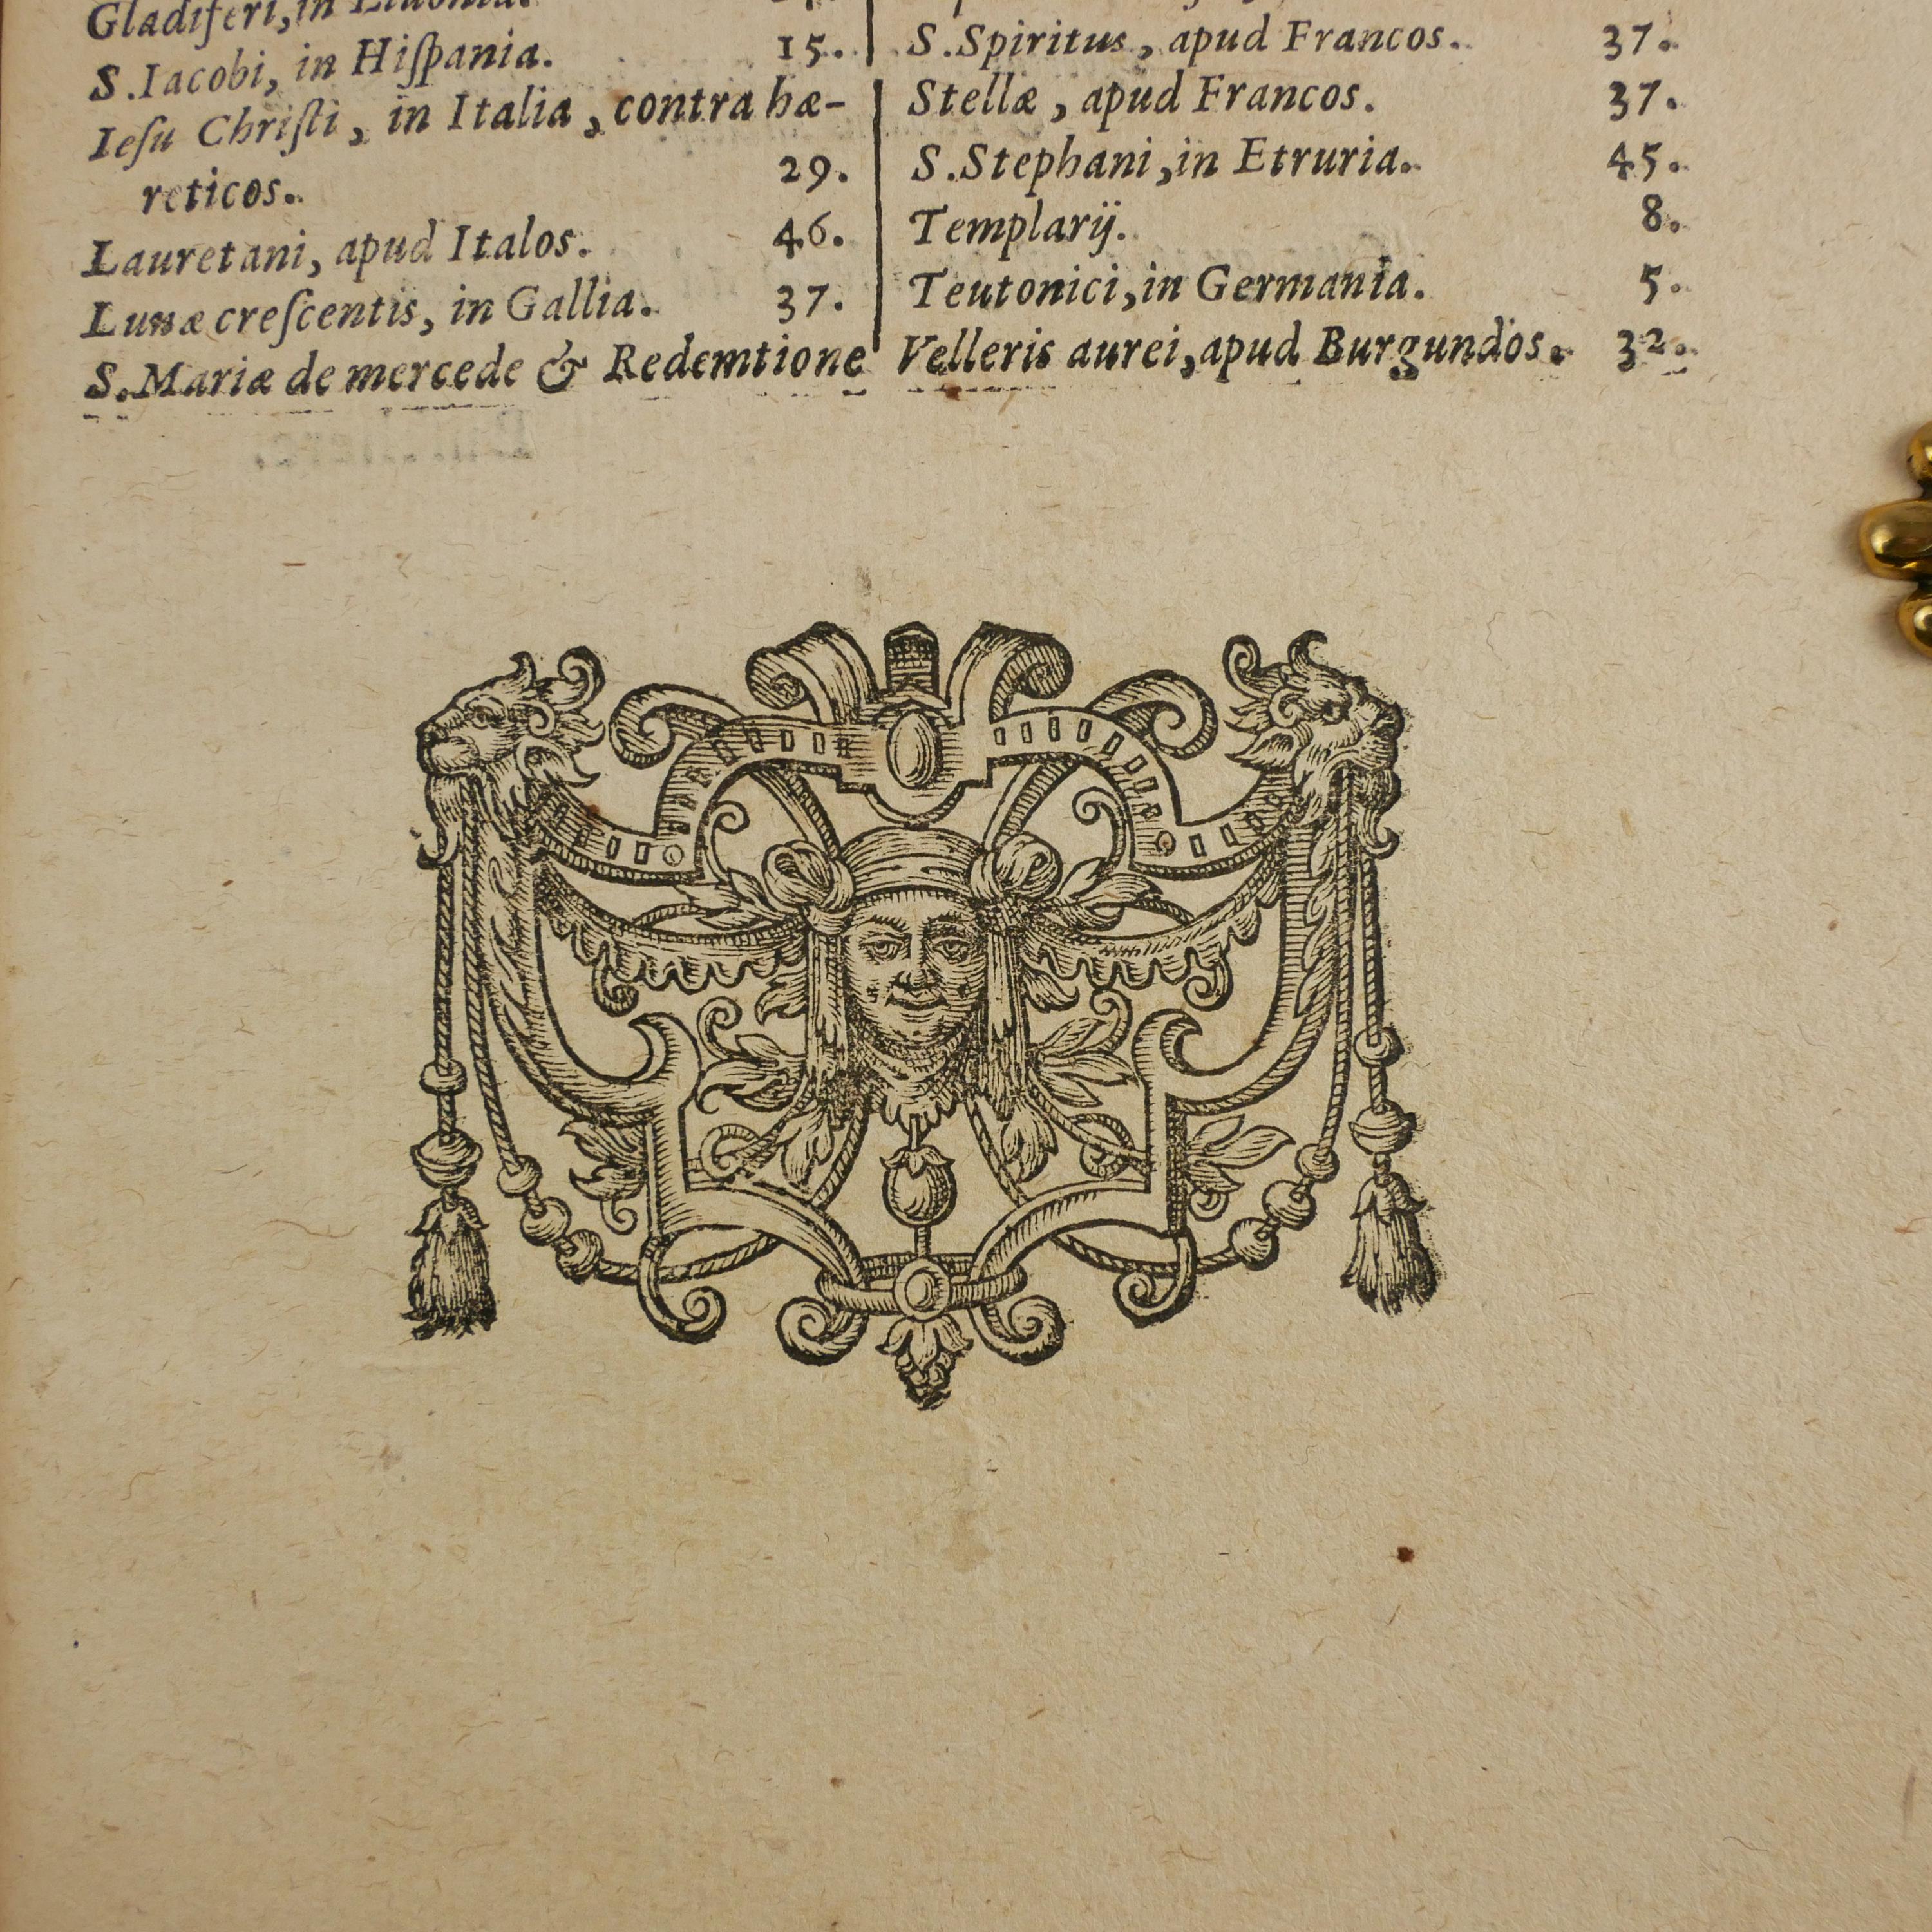 Gladiferi, in
S. Iacobi, in Hiſpania. 15.
Ieſu Chriſti, in Italia, contra hæ-
reticos. 29.
Lauretani, apud Italos. 46.
Lunæ creſcentis, in Gallia. 37.
S. Mariæ de mercede & Redemtione
S. Spiritus, apud Francos. 37.
Stellæ, apud Francos. 37.
S. Stephani, in Etruria. 45.
Templarij. 8.
Teutonici, in Germania. 5.
Velleris aurei, apud Burgundos. 32.